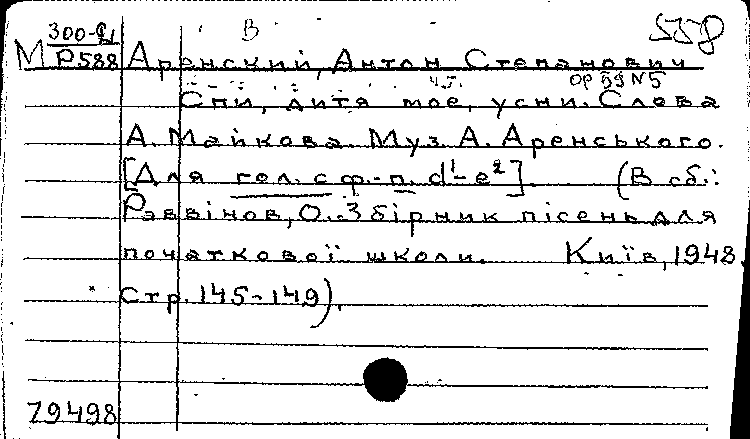 В 558
М 300-Ц/Р588 Аренский, Антон Степанович
ч.г. ор 59 N5
Спи, дитя мое, усни. Слова
А. Майкова. Муз. А. Аренського.
[Для гол. с ф.-п. d¹-e²]. (В сб.:
Раввінов, О. Збірник пісень для
початкової школи. Київ, 1948.
Стр. 145-149).
79498